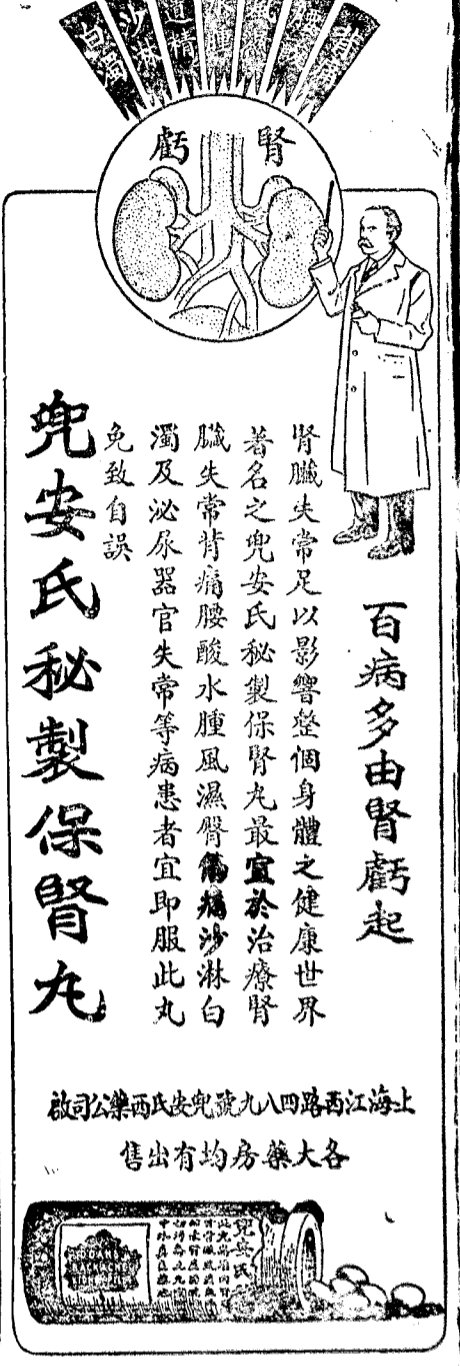 背痛
沙淋
白濁
腎虧
百病多由腎虧起
腎臟失常足以影響整個身體之健康世界
著名之兜安氏秘製保腎丸最宜於治療腎
臟失常背痛腰酸水腫風濕沙淋白
濁及泌尿器官失常等病患者宜即服此丸
免致自誤
兜安氏秘製保腎丸
上海江西路四八九號兜安氏西藥公司啟
各大藥房均有出售
兜安氏